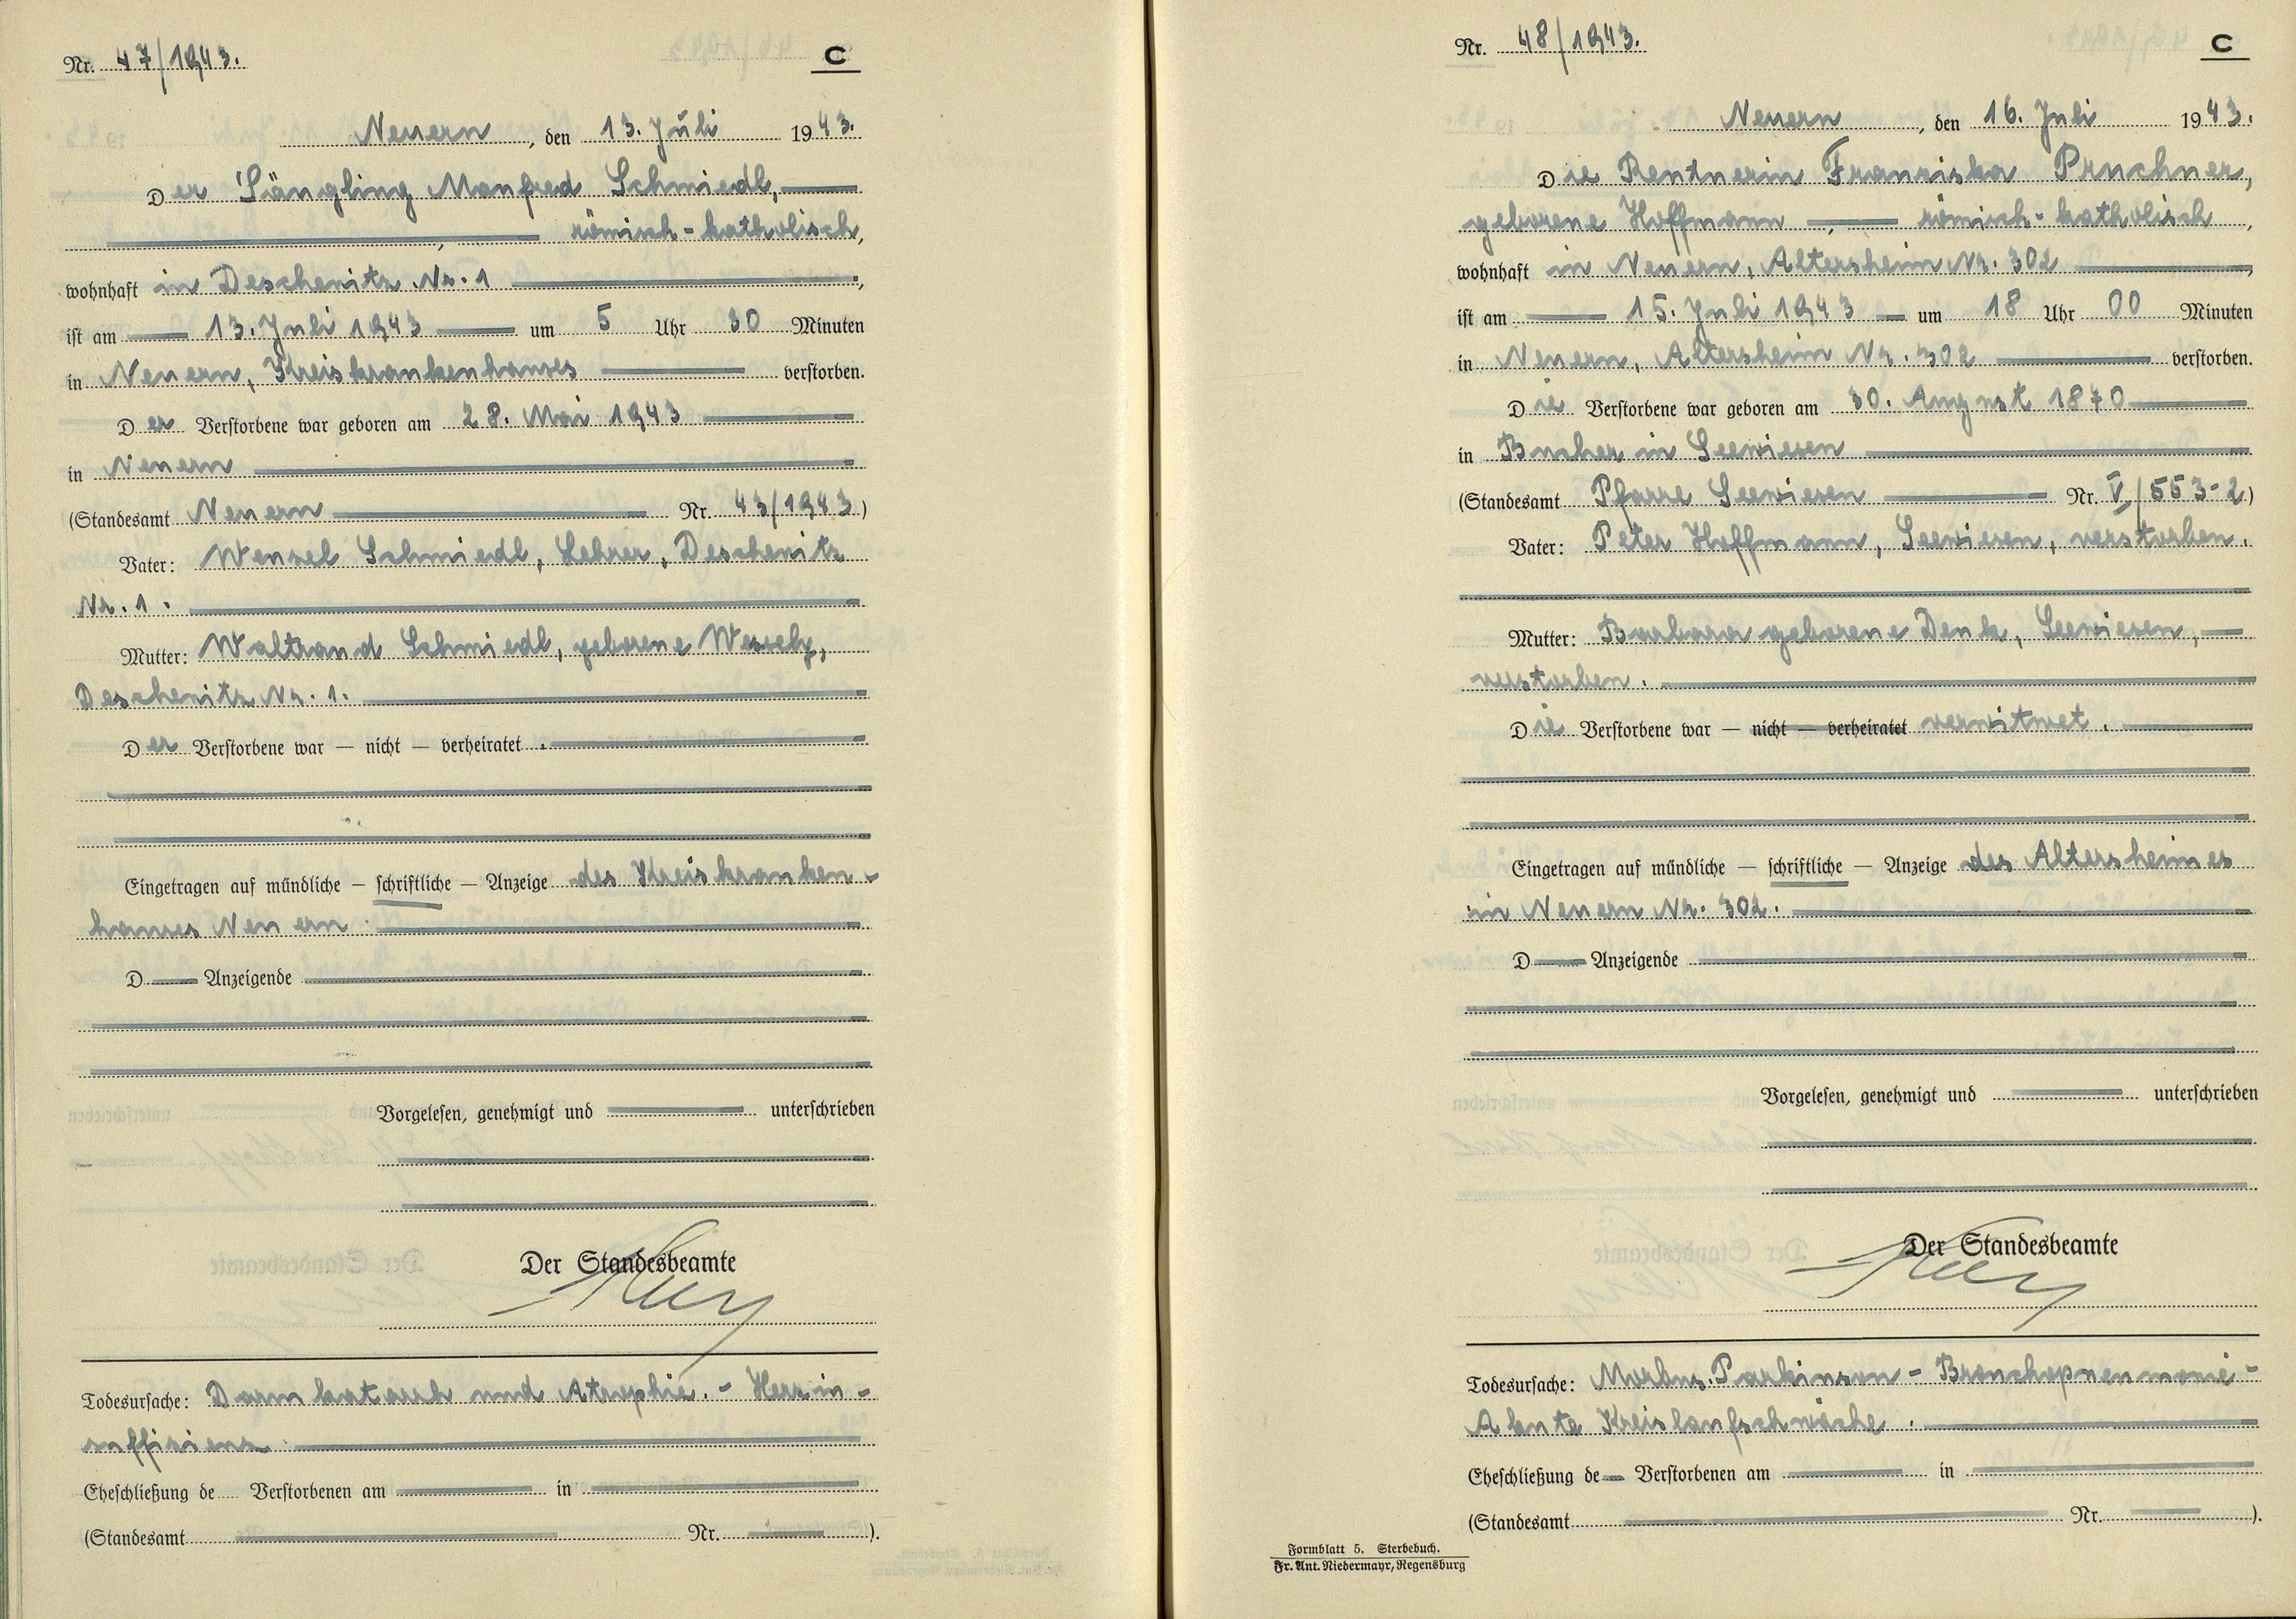 Nr. 47/1943.
C
Neuern, den 13. Juli 1943.
Der Säugling Manfred Schmiedl,
römisch-katholisch,
wohnhaft in Deschenitz Nr. 1,
ist am 13. Juli 1943 um 5 Uhr 30 Minuten
in Neuern, Kreiskrankenhauses verstorben.
Der Verstorbene war geboren am 28. Mai 1943
in Neuern
(Standesamt Neuern Nr. 43/1943)
Vater: Wenzel Schmiedl, Lehrer, Deschenitz
Nr. 1.
Mutter: Waltraud Schmiedl, geborene Wessely,
Deschenitz Nr. 1.
Der Verstorbene war — nicht — verheiratet.
Eingetragen auf mündliche — schriftliche — Anzeige des Kreiskranken-
hauses Neuern.
D Anzeigende
Vorgelesen, genehmigt und unterschrieben
Der Standesbeamte
Todesursache: Darmkatarrh und Atrophie. - Herzin-
suffizienz.
Eheschließung de Verstorbenen am in
(Standesamt Nr. ).
Nr. 48/1943.
C
Neuern, den 16. Juli 1943.
Die Rentnerin Franziska Pruchner,
geborene Hoffmann, römisch-katholisch,
wohnhaft in Neuern, Altersheim Nr. 302,
ist am 15. Juli 1943 um 18 Uhr 00 Minuten
in Neuern, Altersheim Nr. 302 verstorben.
Die Verstorbene war geboren am 30. August 1870
in Bucher in Seewiesen
(Standesamt Pfarre Seewiesen Nr. V/553-2)
Vater: Peter Hoffmann, Seewiesen, verstorben.
Mutter: Barbara geborene Denk, Seewiesen,
verstorben.
Die Verstorbene war — nicht — verheiratet verwitwet.
Eingetragen auf mündliche — schriftliche — Anzeige des Altersheimes
in Neuern Nr. 302.
D Anzeigende
Vorgelesen, genehmigt und unterschrieben
Der Standesbeamte
Todesursache: Morbus. Parkinson - Bronchopneumonie -
Akute Kreislaufschwäche.
Eheschließung de Verstorbenen am in
(Standesamt Nr. ).
Formblatt 5. Sterbebuch.
Fr. Ant. Niedermayr, Regensburg